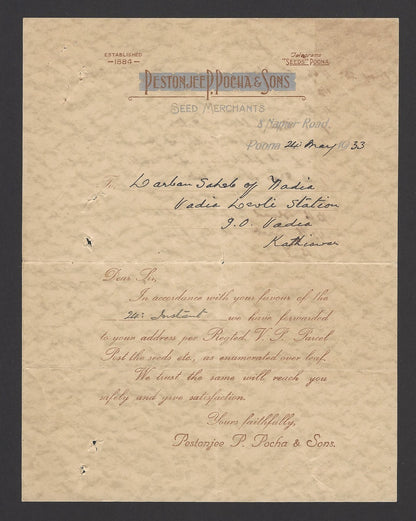 ESTABLISHED
—1884—
Telegrams
"SEEDS" POONA
PESTONJEE P. POCHA & SONS
SEED MERCHANTS
8 Napier Road.
Poona 24 May 1933
To,
Darbar Saheb of Vadia
Vadia Devli Station
P.O. Vadia
Kathiawar
Dear Sir,
In accordance with your favour of the
Instant we have forwarded
to your address per Regted. V. P. Parcel
Post the seeds etc., as enumerated over leaf.
We trust the same will reach you
safely and give satisfaction.
Yours faithfully,
Pestonjee P. Pocha & Sons.